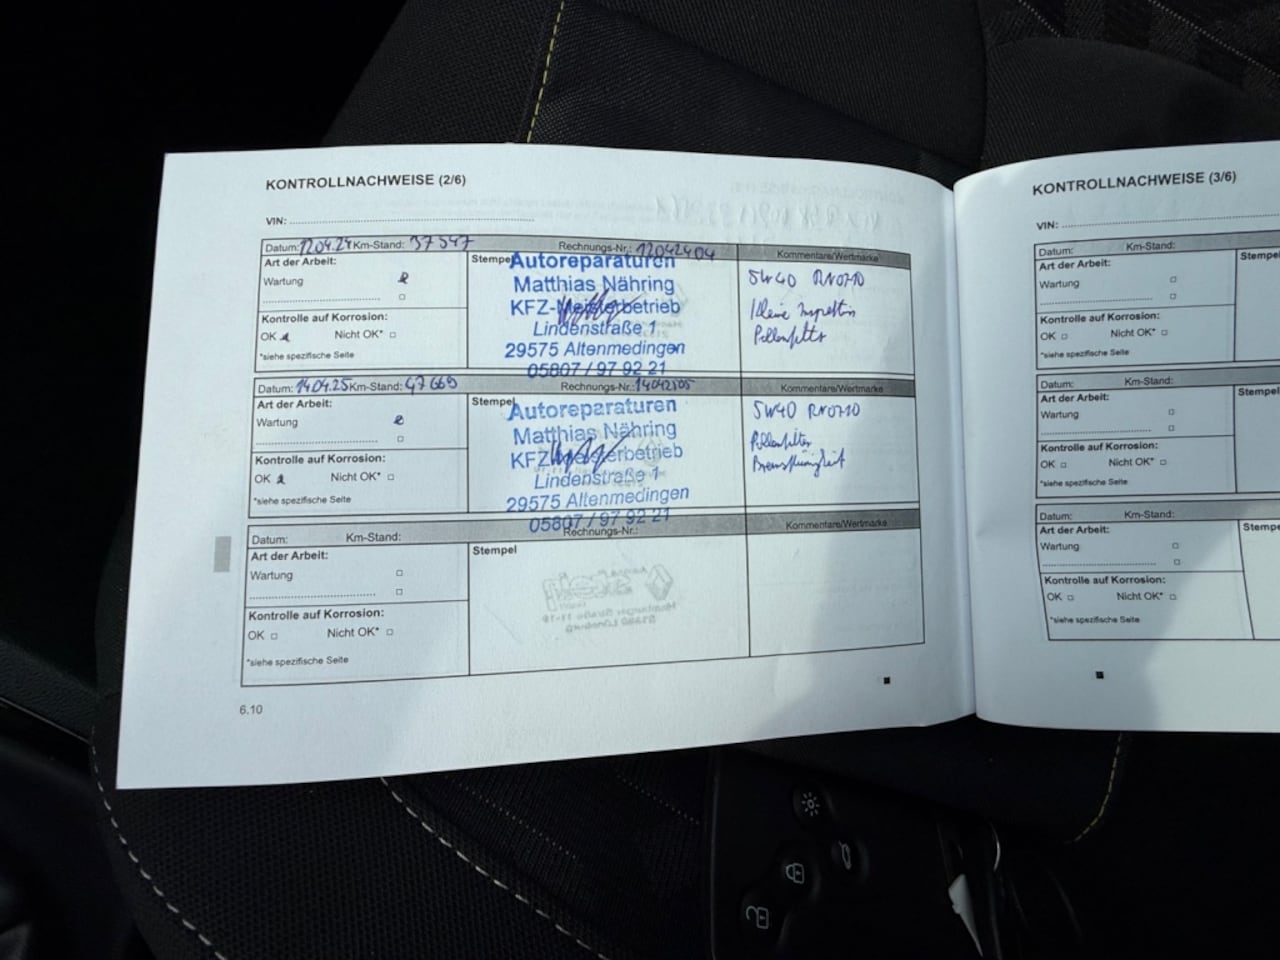 KONTROLLNACHWEISE (2/6)
VIN:
Datum: 12.04.24 Km-Stand: 37547 Rechnungs-Nr.: 12042404 Kommentare/Wertmarke
Art der Arbeit:
Wartung
Kontrolle auf Korrosion:
OK Nicht OK*
*siehe spezifische Seite
Stempel
Autoreparaturen
Matthias Nähring
KFZ-Meisterbetrieb
Lindenstraße 1
29575 Altenmedingen
05807 / 97 92 21
5W40 RN0710
Kleine Inspektion
Pollenfilter
Datum: 14.04.25 Km-Stand: 47669 Rechnungs-Nr.: 14042505 Kommentare/Wertmarke
Art der Arbeit:
Wartung
Kontrolle auf Korrosion:
OK Nicht OK*
*siehe spezifische Seite
Stempel
Autoreparaturen
Matthias Nähring
KFZ-Meisterbetrieb
Lindenstraße 1
29575 Altenmedingen
05807 / 97 92 21
5W40 RN0710
Pollenfilter
Bremsflüssigkeit
Datum: Km-Stand: Rechnungs-Nr.: Kommentare/Wertmarke
Art der Arbeit:
Wartung
Kontrolle auf Korrosion:
OK Nicht OK*
*siehe spezifische Seite
Stempel
6.10
KONTROLLNACHWEISE (3/6)
VIN:
Datum: Km-Stand:
Art der Arbeit:
Wartung
Kontrolle auf Korrosion:
OK Nicht OK*
*siehe spezifische Seite
Stempel
Datum: Km-Stand:
Art der Arbeit:
Wartung
Kontrolle auf Korrosion:
OK Nicht OK*
*siehe spezifische Seite
Stempel
Datum: Km-Stand:
Art der Arbeit:
Wartung
Kontrolle auf Korrosion:
OK Nicht OK*
*siehe spezifische Seite
Stempe